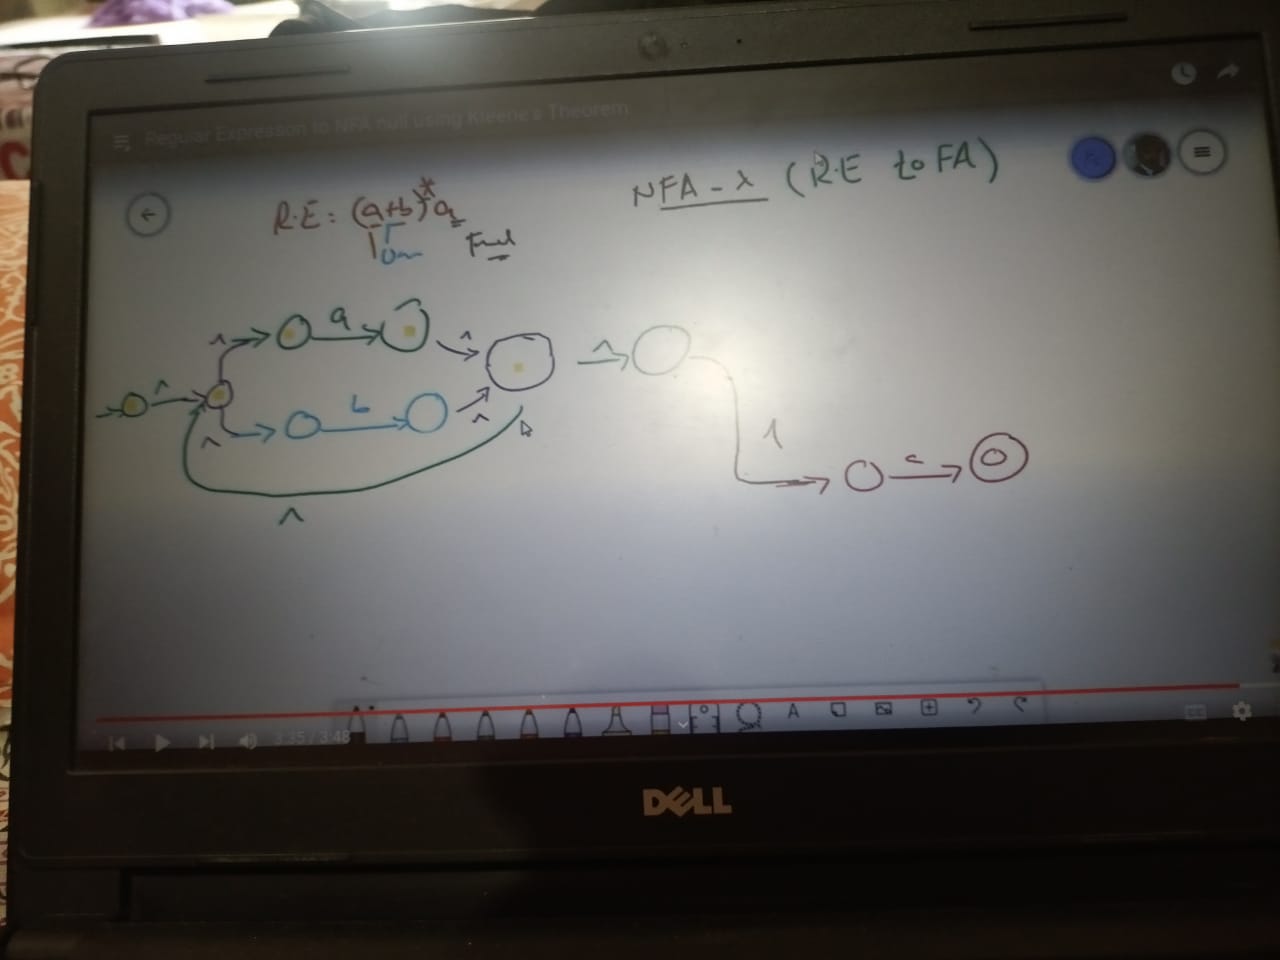 Regular Expresson to NFA null using Kleene's Theorem
NFA - λ (R.E to FA)
R.E : (a+b)*a
^ a ^
^ ^
b
^ ^
^
3:35 / 3:48
DELL